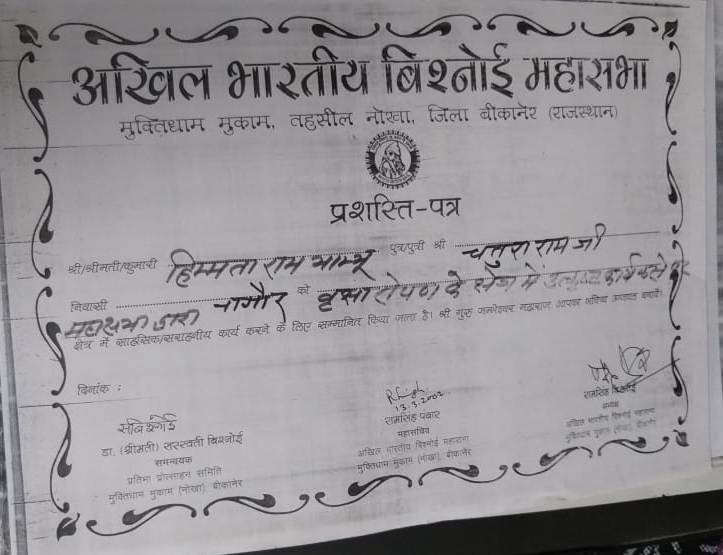 अखिल भारतीय बिश्नोई महासभा
मुक्तिधाम मुकाम, तहसील नोखा, जिला बीकानेर (राजस्थान)
प्रशस्ति-पत्र
श्री/श्रीमती/कुमारी हिम्मता राम भाम्भू पुत्र/पुत्री श्री चतुरा राम जी
निवासी नागौर को वृक्षा रोपण के क्षेत्र में उत्कृष्ट कार्य करने पर
महासभा द्वारा
क्षेत्र में साहसिक/सराहनीय कार्य करने के लिए सम्मानित किया जाता है। श्री गुरु जम्भेश्वर महाराज आपका भविष्य उज्ज्वल बनावें।
दिनांक :
डा. (श्रीमती) सरस्वती बिश्नोई
समन्वयक
प्रतिभा प्रोत्साहन समिति
मुक्तिधाम मुकाम (नोखा) बीकानेर
13.3.2002
रामसिंह पंवार
महासचिव
अखिल भारतीय बिश्नोई महासभा
मुक्तिधाम मुकाम (नोखा), बीकानेर
रामसिंह बिश्नोई
अध्यक्ष
अखिल भारतीय बिश्नोई महासभा
मुक्तिधाम मुकाम (नोखा), बीकानेर